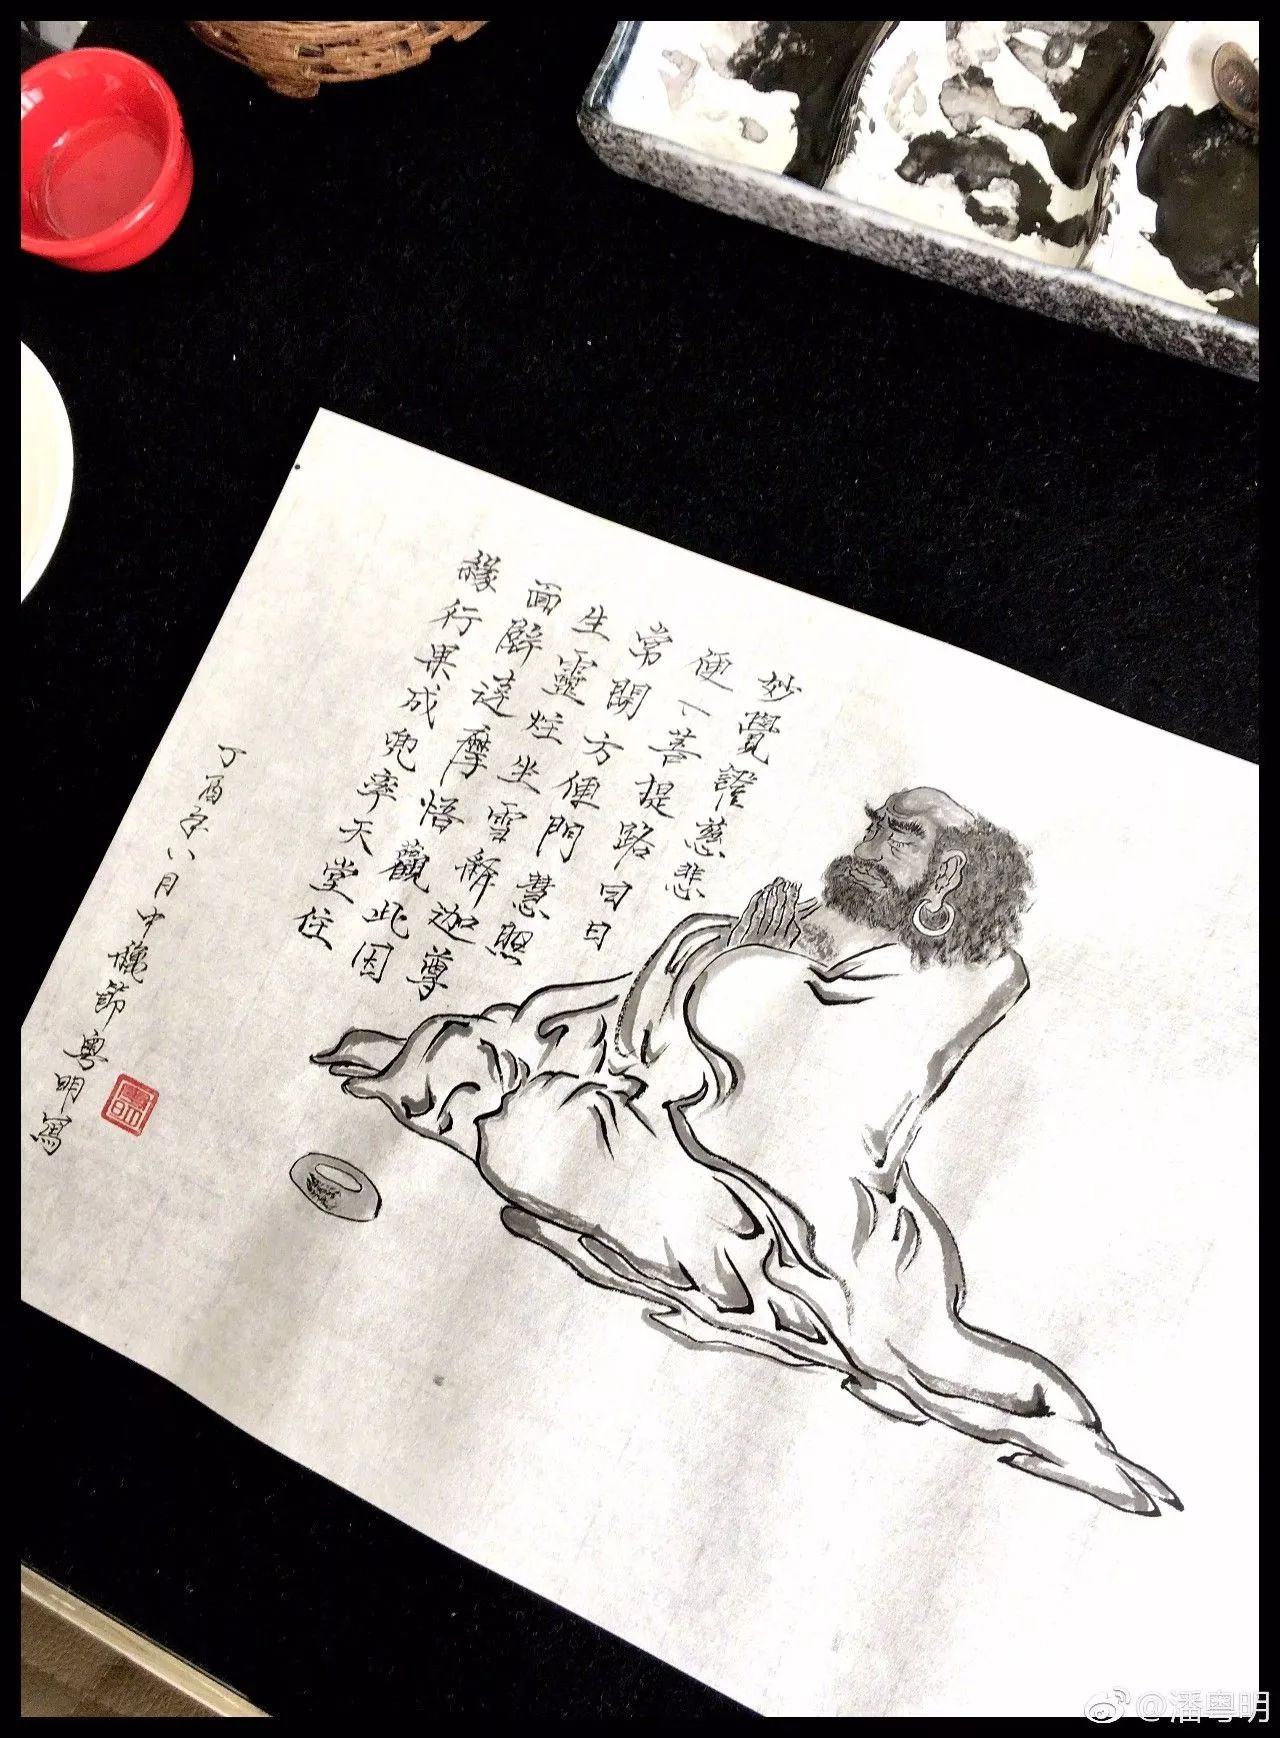 妙覺證慈悲
便下菩提路目目
常開方便門慧照
生靈炷坐雪釋迦尊
面壁達摩悟觀此因
緣行果成兜率天堂住
丁酉年八月中穐節粵明寫
@潘粤明